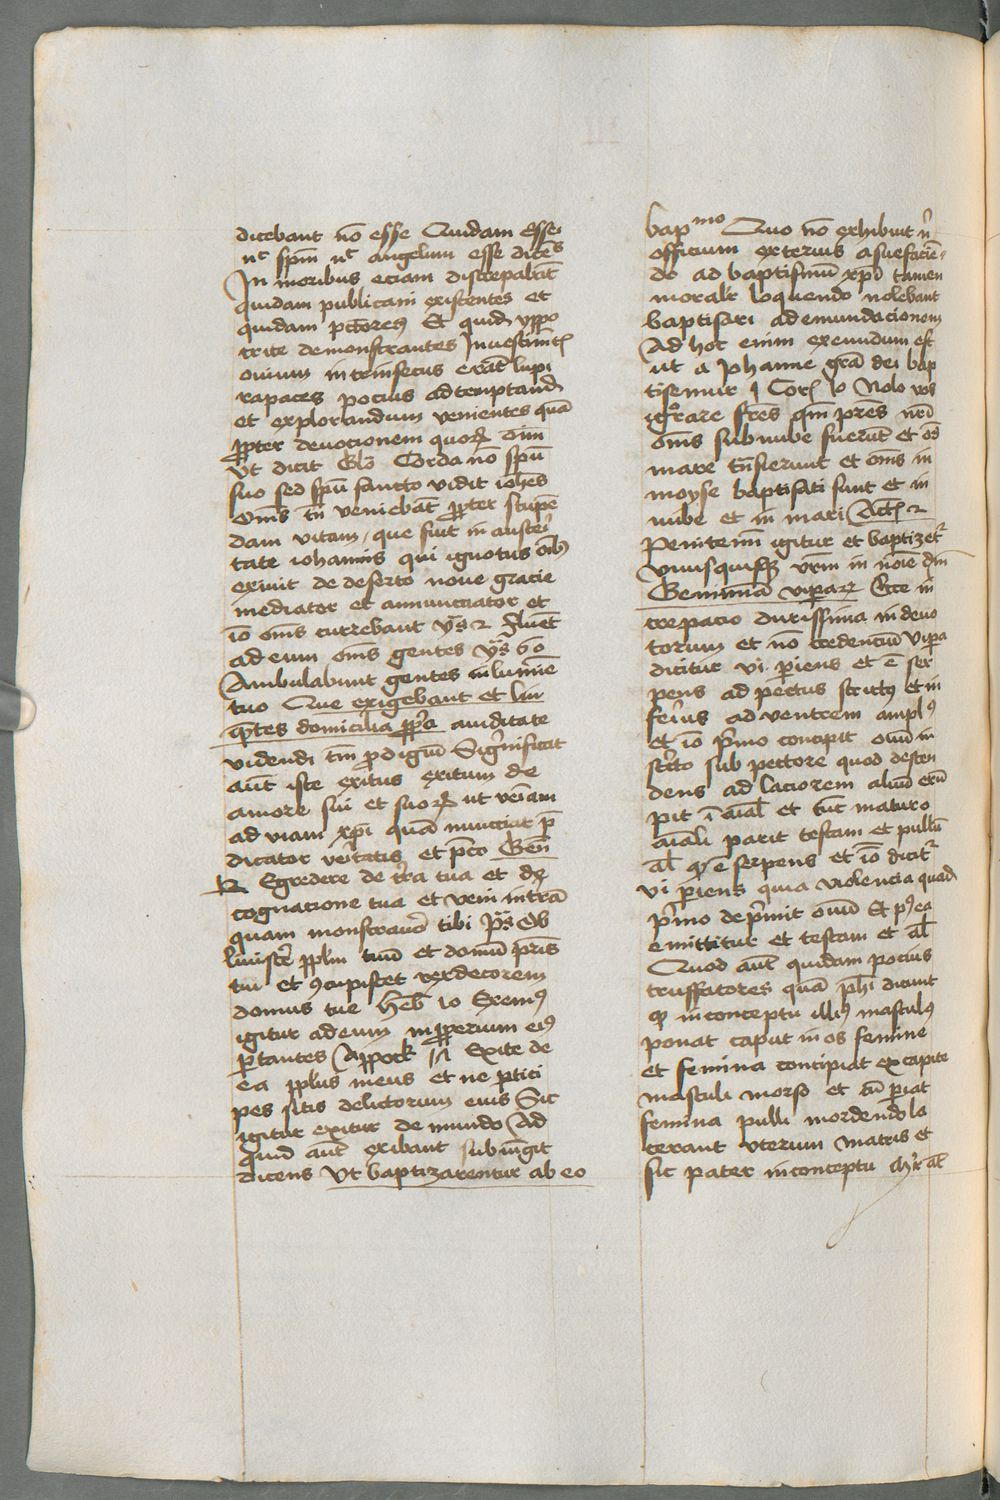 dicebant nō esse Quidam esse
nͨ spm̄ nͨ angelum esse dicēs
In moribus eciam discrepabāt
Quidam publicani existentes et
quidam pctōres Et quidā yppo
crite demonstrantes In vestimētꝭ
ouium intrinsecus erāt lupi
rapaces pocius ad temptandū
et explorandum venientes quā
ꝓpter deuocionem quoꝝ oīm
vt dicit Glo Corda nō spū
suo sed spū sancto vidit iohēs
Om̄s tn̄ veniebāt ꝓpter stupē
dam vitam que fuit in austeri
tate iohannis qui ignotus oībꝰ
exiuit de deserto noue gracie
mediator et annuncciator et
iō om̄s currebant ys 2 Fluēt
ad eum om̄s gentes ys 60
Ambulabunt gentes in lumīe
tuo Que exigebant et lin
q̄ntes domicilia ꝓpͥa auiditate
videndi tm̄ ꝓdigiū Significat
aūt iste exitus exitum de
amore sui et suoꝝ ut veīam
ad viam xpī quā nunciat p̄
dicator veritatis et pͨco Gen̄
12 Egredere de tr̄a tua et de
cognacione tua et veni in trā
quam monstrauͦ tibi ps Ob
liuiscē pplm tuū et domū pr̄is
tui et ꝯcupiscet rex decorem
domus tue Heb̄ 10 Exeamꝰ
igitur ad eum inꝓperium eiꝰ
portantes Appock 18 Exite de
ea pplus meus et ne ptici
pes sitis delictorum eius Sic
igitur exitur de mundo Ad
quid aūt exibant subiūgit
dicens Vt baptizarentur ab eo
bapᵐᵒ Quo nō exhibuit nͥ
officium exterius asuefaciē
do ad baptismū xpī tamen
moralr̄ loquendo nolebant
baptisari ad emundacionem
Ad hoc enim exeundum est
ut a Johanne grā dei bap
tisemur 1 Corꝭ 10 Nolo vos
ignorare frēs qm̄ prēs nrī
om̄s sub nube fuerūt et om̄s
mare trn̄sierunt et om̄s in
moyse baptisati sunt et in
nube et in mari Actꝭ 2
Penitemī igitur et baptizetꝰ
vnusquisqꝫ vr̄m in noīe dn̄i
Genimīa viperaꝝ Ecce in
crepacio durissima indeuo
torum et nō credenciū vipa
dicitur vi pariens et ē ser
pens ad pectus strictꝰ et in
feriꝰ ad ventrem amplꝰ
et iō pͥmo concipit ouū in
strͨto sub pectore quod descen
dens ad laciorem aluū erū
pit ī aīal et tūc maturo
aīali parit testam et pullū
al qͥ ē serpens et iō dicitͬ
vi pariens quia violencia quadā
pͥmo depͥmit ouū Et pꝰea
emittitur et testam et al
Quod aūt quidam pocius
truffatores quā phī dicunt
qͣ in conceptu illiꝰ masculꝰ
ponat caput in os femine
et femina concipiat ex capite
masculi morso et cū pariat
femina pulli mordendo la
cerant vterum matris et
sic pater in conceptu